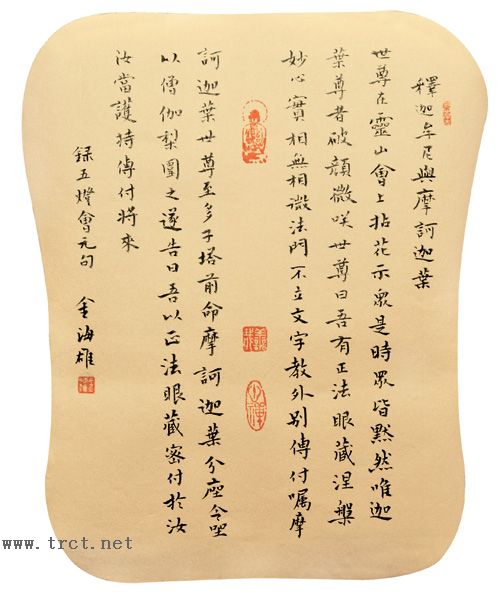 釋迦牟尼與摩訶迦葉
世尊在靈山會上拈花示眾是時眾皆黙然唯迦
葉尊者破顔微咲世尊曰吾有正法眼藏涅槃
妙心實相無相微法門不立文字教外别傳付嘱摩
訶迦葉世尊至多子塔前命摩訶迦葉分座令坐
以僧伽梨圍之遂告曰吾以正法眼藏密付於汝
汝當護持傳付將來
録五燈會元句
金海雄
www.trct.net